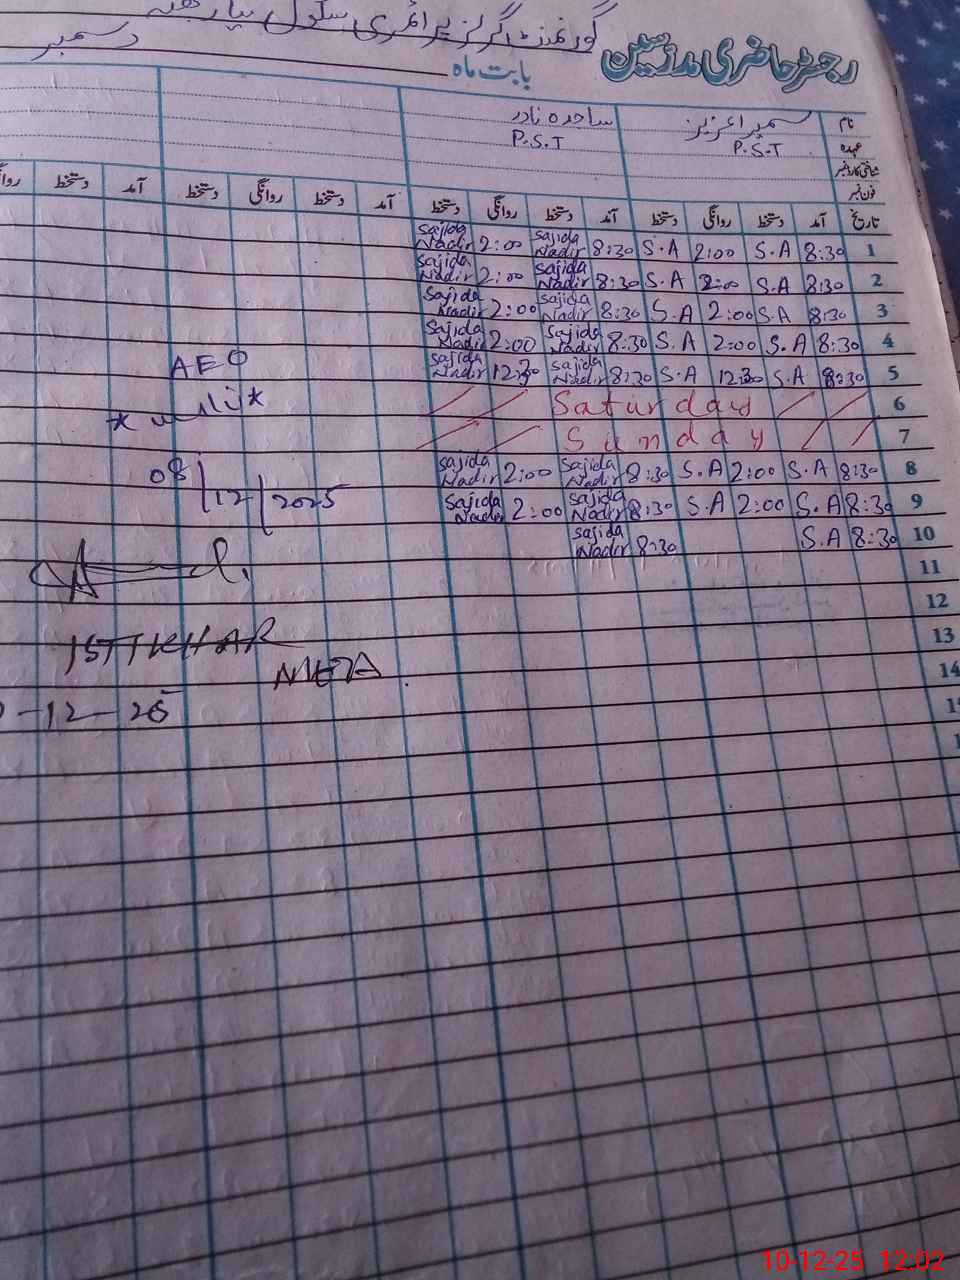 گورنمنٹ گرلز پرائمری سکول
رجسٹر حاضری مدرسین
بابت ماہ دسمبر
نام سمیرا عزیز ساجدہ نادر
عہدہ P.S.T P.S.T
شناختی کارڈ نمبر
فون نمبر
تاریخ آمد دستخط روانگی دستخط آمد دستخط روانگی دستخط آمد دستخط روانگی دستخط آمد دستخط
1 8:30 S.A 2:00 S.A 8:30 Sajida Nadir 2:00 Sajida Nadir
2 8:30 S.A 2:00 S.A 8:30 Sajida Nadir 2:00 Sajida Nadir
3 8:30 S.A 2:00 S.A 8:30 Sajida Nadir 2:00 Sajida Nadir
4 8:30 S.A 2:00 S.A 8:30 Sajida Nadir 2:00 Sajida Nadir
5 8:30 S.A 12:30 S.A 8:30 Sajida Nadir 12:30 Sajida Nadir
6 Saturday
7 Sunday
8 8:30 S.A 2:00 S.A 8:30 Sajida Nadir 2:00 Sajida Nadir
9 8:30 S.A 2:00 S.A 8:30 Sajida Nadir 2:00 Sajida Nadir
10 8:30 S.A 8:30 Sajida Nadir
11
12
13
14
AEO
08/12/2025
ISTIKHAR
MEA
-12-25
10-12-25 12:02